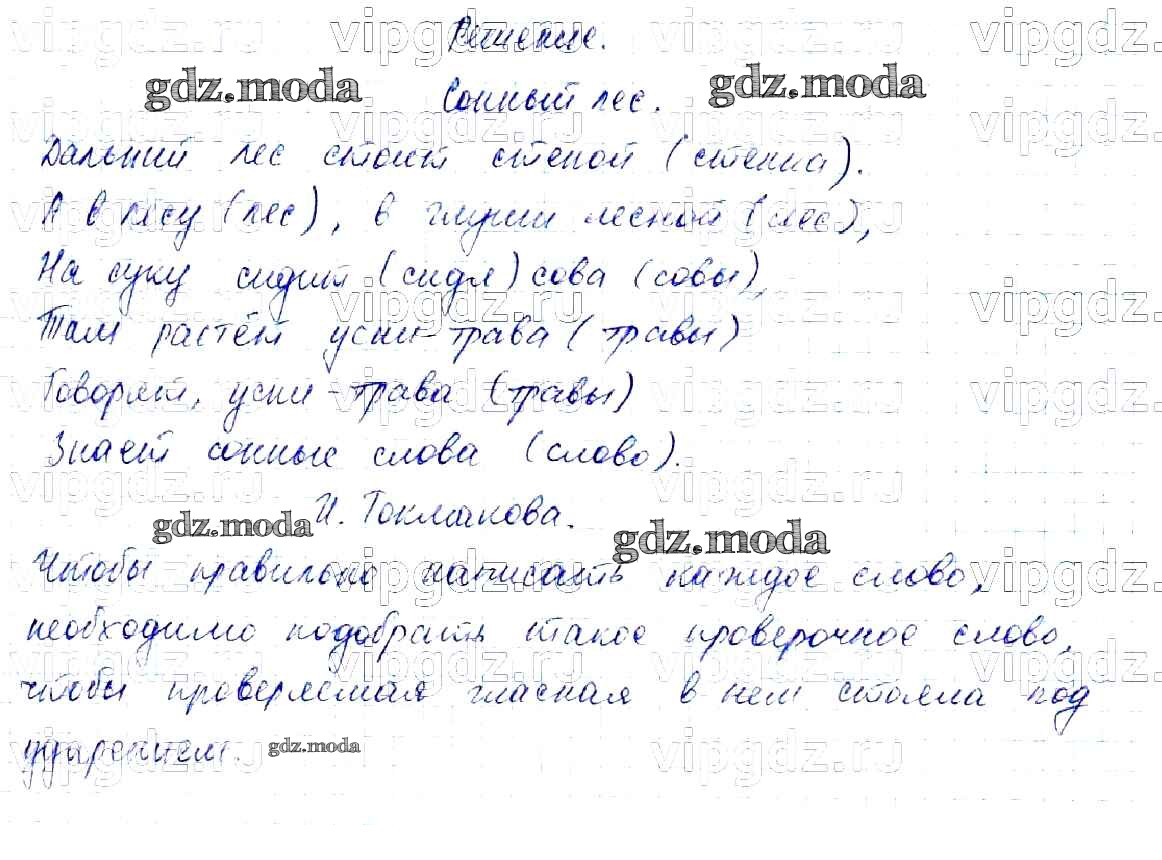 Решение.
Сонный лес.
Дальний лес стоит стеной (стенка).
А в лесу (лес), в глуши лесной (лес),
На суку сидит (сидя) сова (совы),
Там растёт усни-трава (травы)
Говорят, усни-трава (травы)
Знает сонные слова (слово).
И. Токмакова.
Чтобы правильно написать каждое слово,
необходимо подобрать такое проверочное слово,
чтобы проверяемая гласная в нем стояла под
ударением.
gdz.moda
gdz.moda
gdz.moda
gdz.moda
gdz.moda
vipgdz.ru